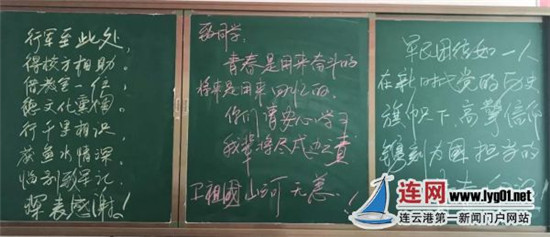 行军至此处，
得校方相助。
借教室一位，
感文化熏陶。
行千里相识，
获鱼水情深。
临别致
挥表感谢！
致同学：
青春是用来奋斗的
将来是用来回忆的。
你们请安心学习
我辈将尽戍边之责
卫祖国山河无恙！
军民团结如一人
在新时代党的历史
旗帜下高擎信仰
镌刻为国担当的
连网 www.lyg01.net
连云港第一新闻门户网站